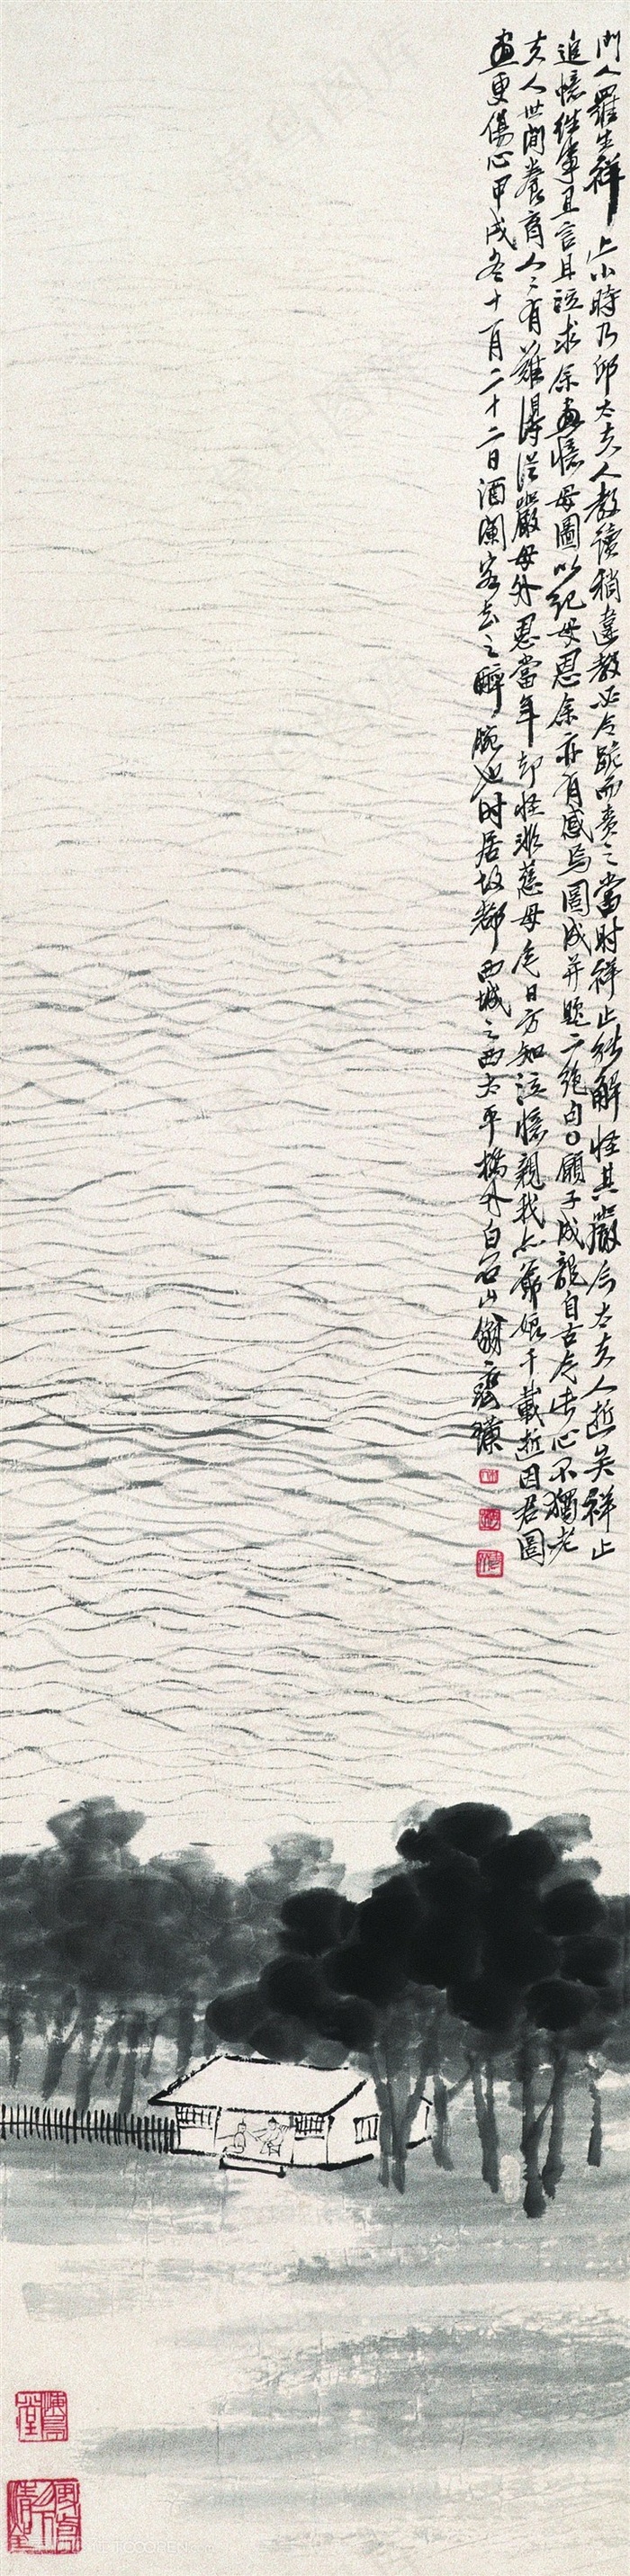 門人羅生祥止小時乃邱太夫人教讀稍違教必令跪而責之當時祥止能解怪其嚴今太夫人逝矣祥止
追憶往事且言且泣求余畫憶母圖以紀母恩余亦有感焉圖成并題二絕句願子成龍自古今此心不獨老
夫人世間養育人人有難得從嚴母外恩當年却怪非慈母今日方知泣憶親我亦爺娘千載逝因君圖
畫更傷心甲戌冬十一月二十二日酒闌客去之醉腕也時居故都西城之西太平橋外白石山翁齊璜